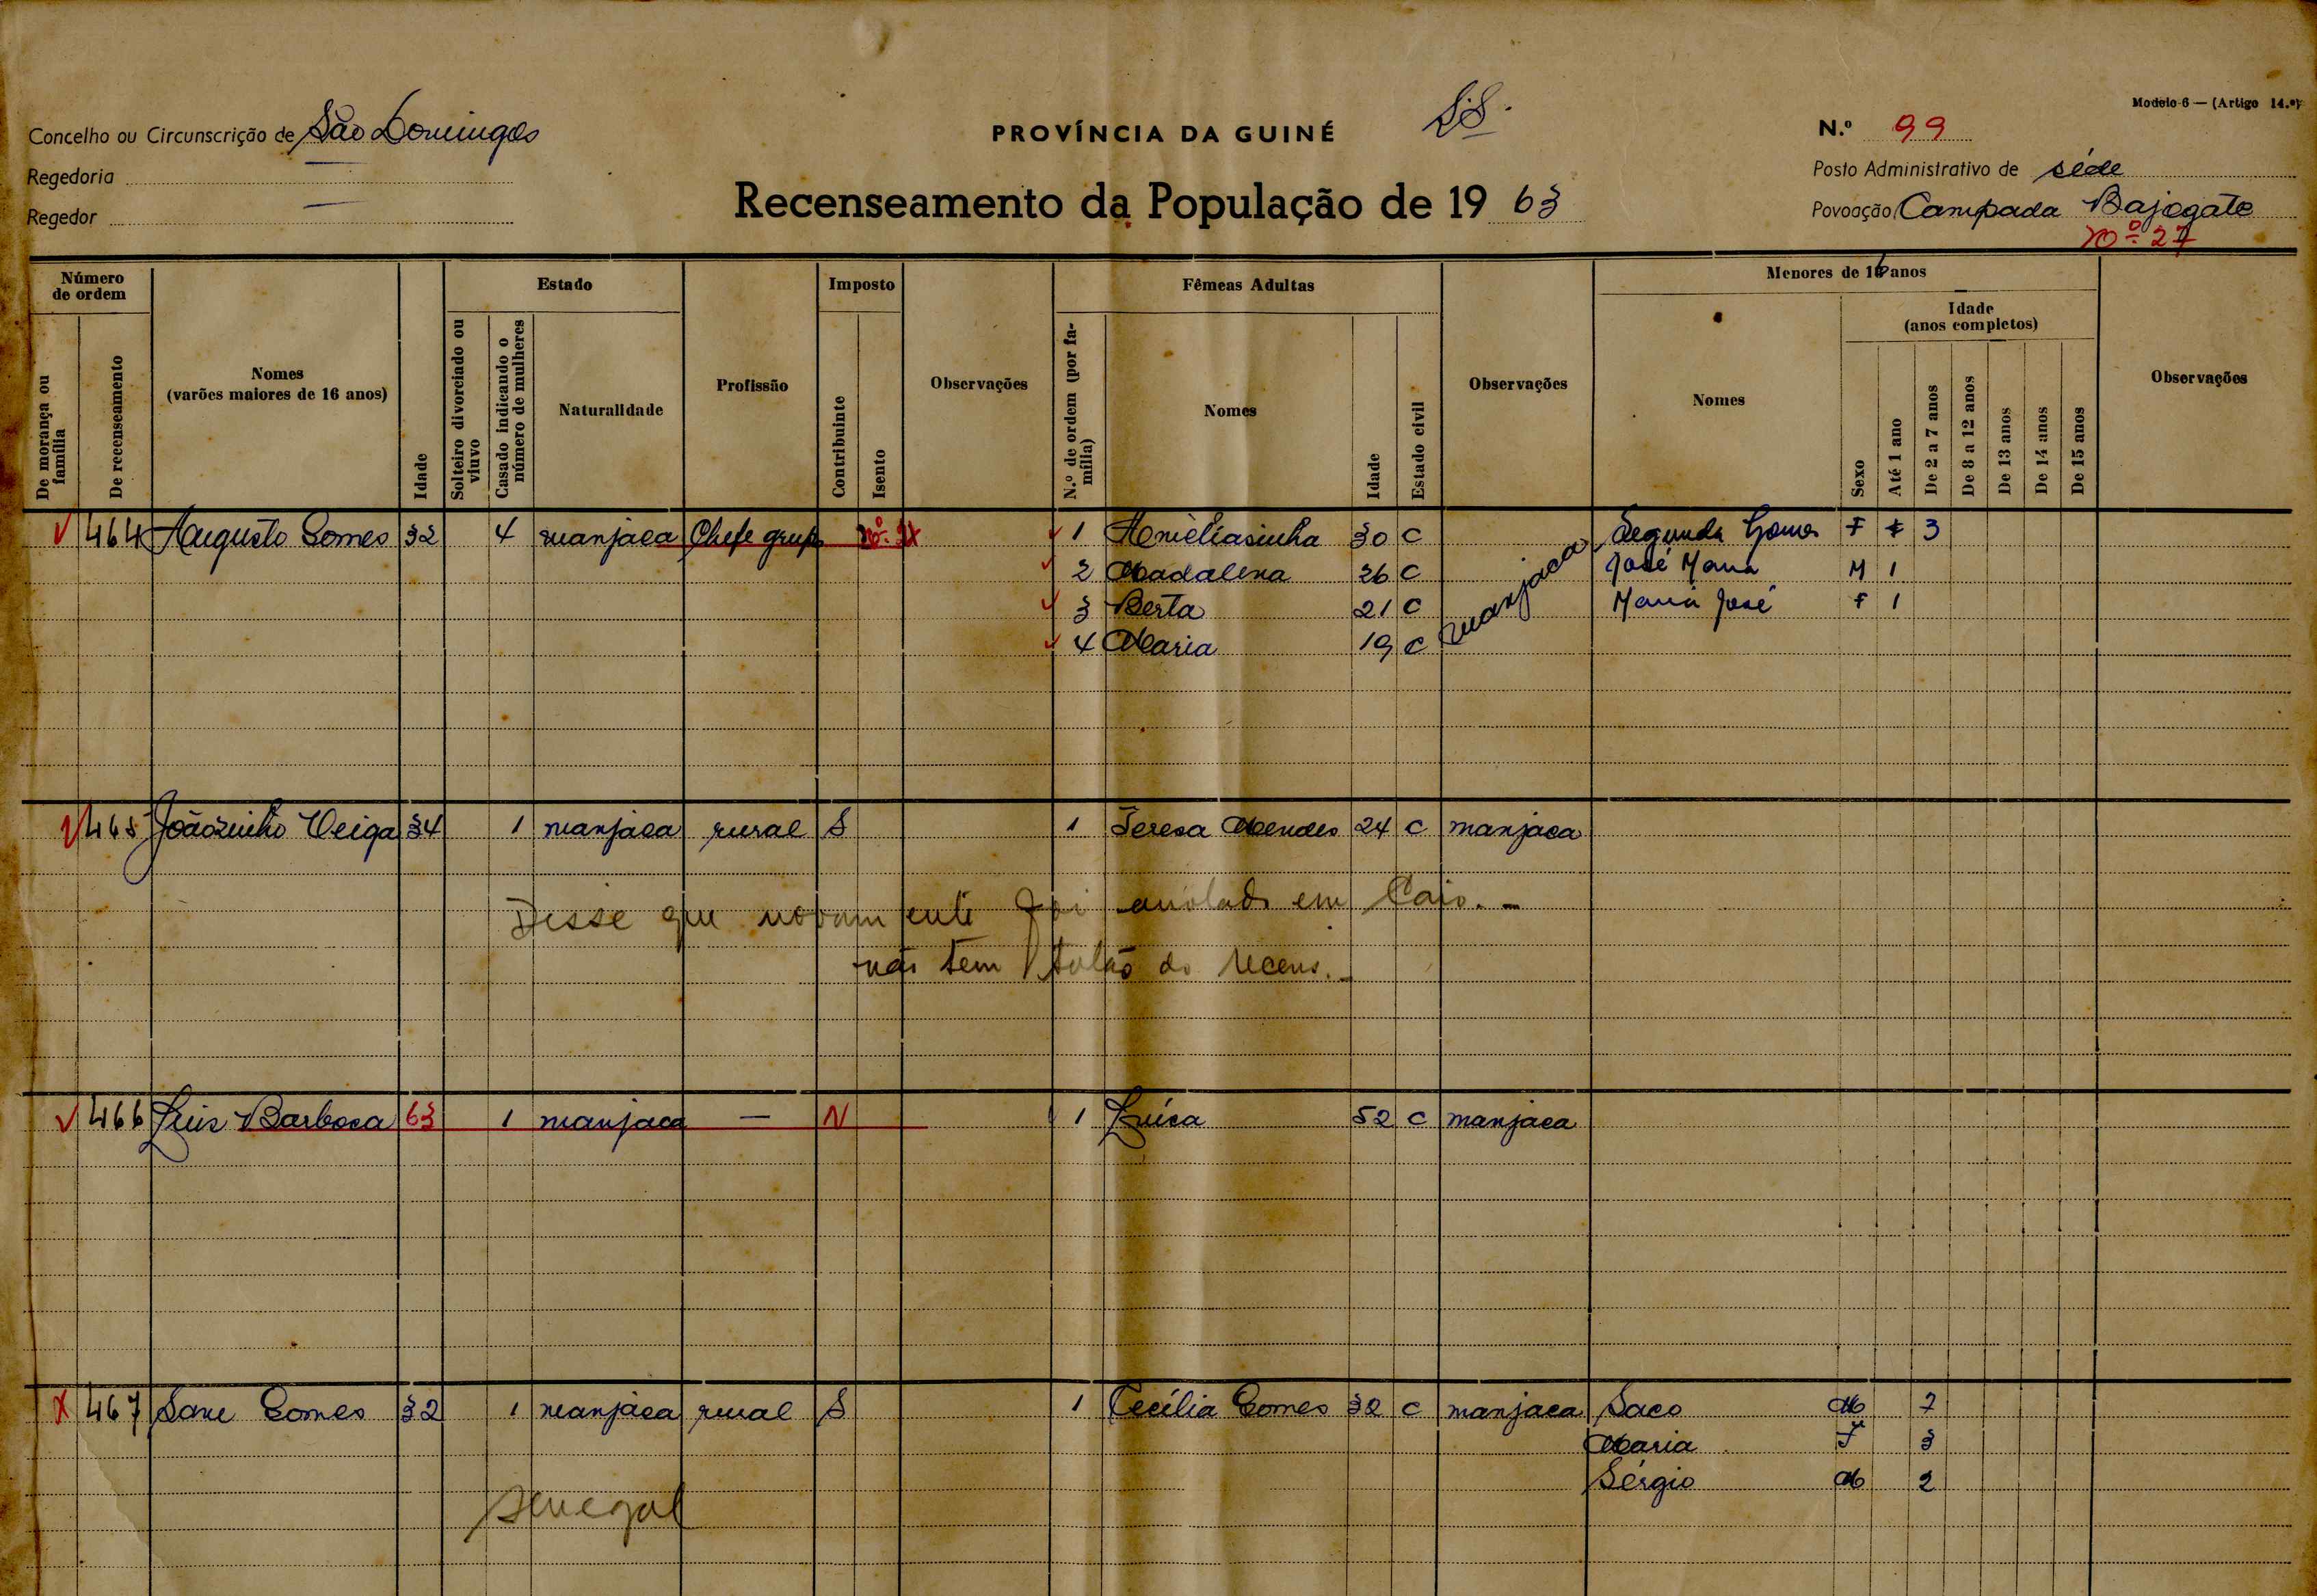 Modelo 6 — (Artigo 14.º)
Concelho ou Circunscrição de São Domingos
PROVÍNCIA DA GUINÉ
N.º 99
Regedoria
Posto Administrativo de séde
Regedor
Recenseamento da População de 1963
Povoação Campada Bajogate
Nº 27
Número de ordem
De morança ou família
De recenseamento
Nomes
(varões maiores de 16 anos)
Idade
Estado
Solteiro divorciado ou viuvo
Casado indicando o número de mulheres
Naturalidade
Profissão
Imposto
Contribuinte
Isento
Observações
Fêmeas Adultas
N.º de ordem (por família)
Nomes
Idade
Estado civil
Observações
Menores de 16 anos
Nomes
Sexo
Idade
(anos completos)
Até 1 ano
De 2 a 7 anos
De 8 a 12 anos
De 13 anos
De 14 anos
De 15 anos
Observações
464 Augusto Gomes 32 4 manjaca Chefe grup 1 Améliasinha 30 C manjaca Segunda Gomes F 3
2 Madalena 26 C José Maria M 1
3 Berta 21 C Maria José F 1
4 Maria 19 C
465 Joãozinho Veiga 34 1 manjaca rural S 1 Teresa Mendes 24 C manjaca
Disse que novamente foi anolado em Caio. -
não tem talão do recens. -
466 Luis Barbosa 63 1 manjaca — N 1 Luísa 52 C manjaca
467 Sane Gomes 32 1 manjaca rural S 1 Cecília Gomes 32 C manjaca Saco M 7
Maria F 3
Sérgio M 2
Senegal